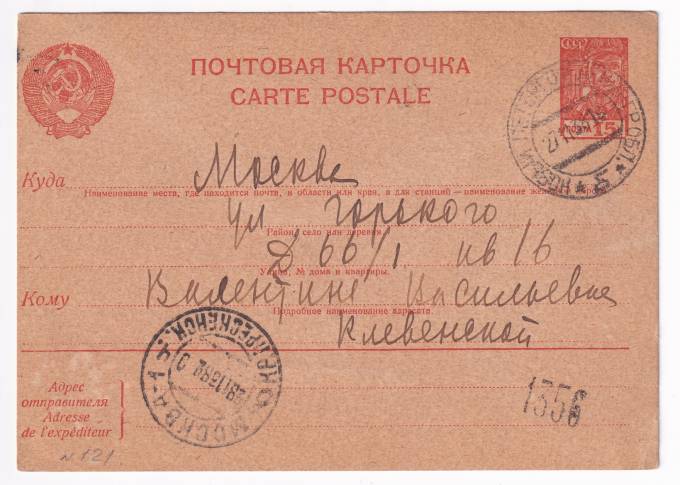 ПОЧТОВАЯ КАРТОЧКА
CARTE POSTALE
СССР
15
Куда
Москва
Наименование места, где находится почта, и области или края, а для станций—наименование
ул Горького
Район, село или деревня
д 66/1 кв 16
Улица, № дома и квартиры.
Кому
Валентине Васильевне
Подробное наименование адресата.
Клевенской
МОСКВА-1
КРАСНОПРЕСНЕНСК.
1356
Адрес
отправителя
Adresse
de l'expéditeur
N.121